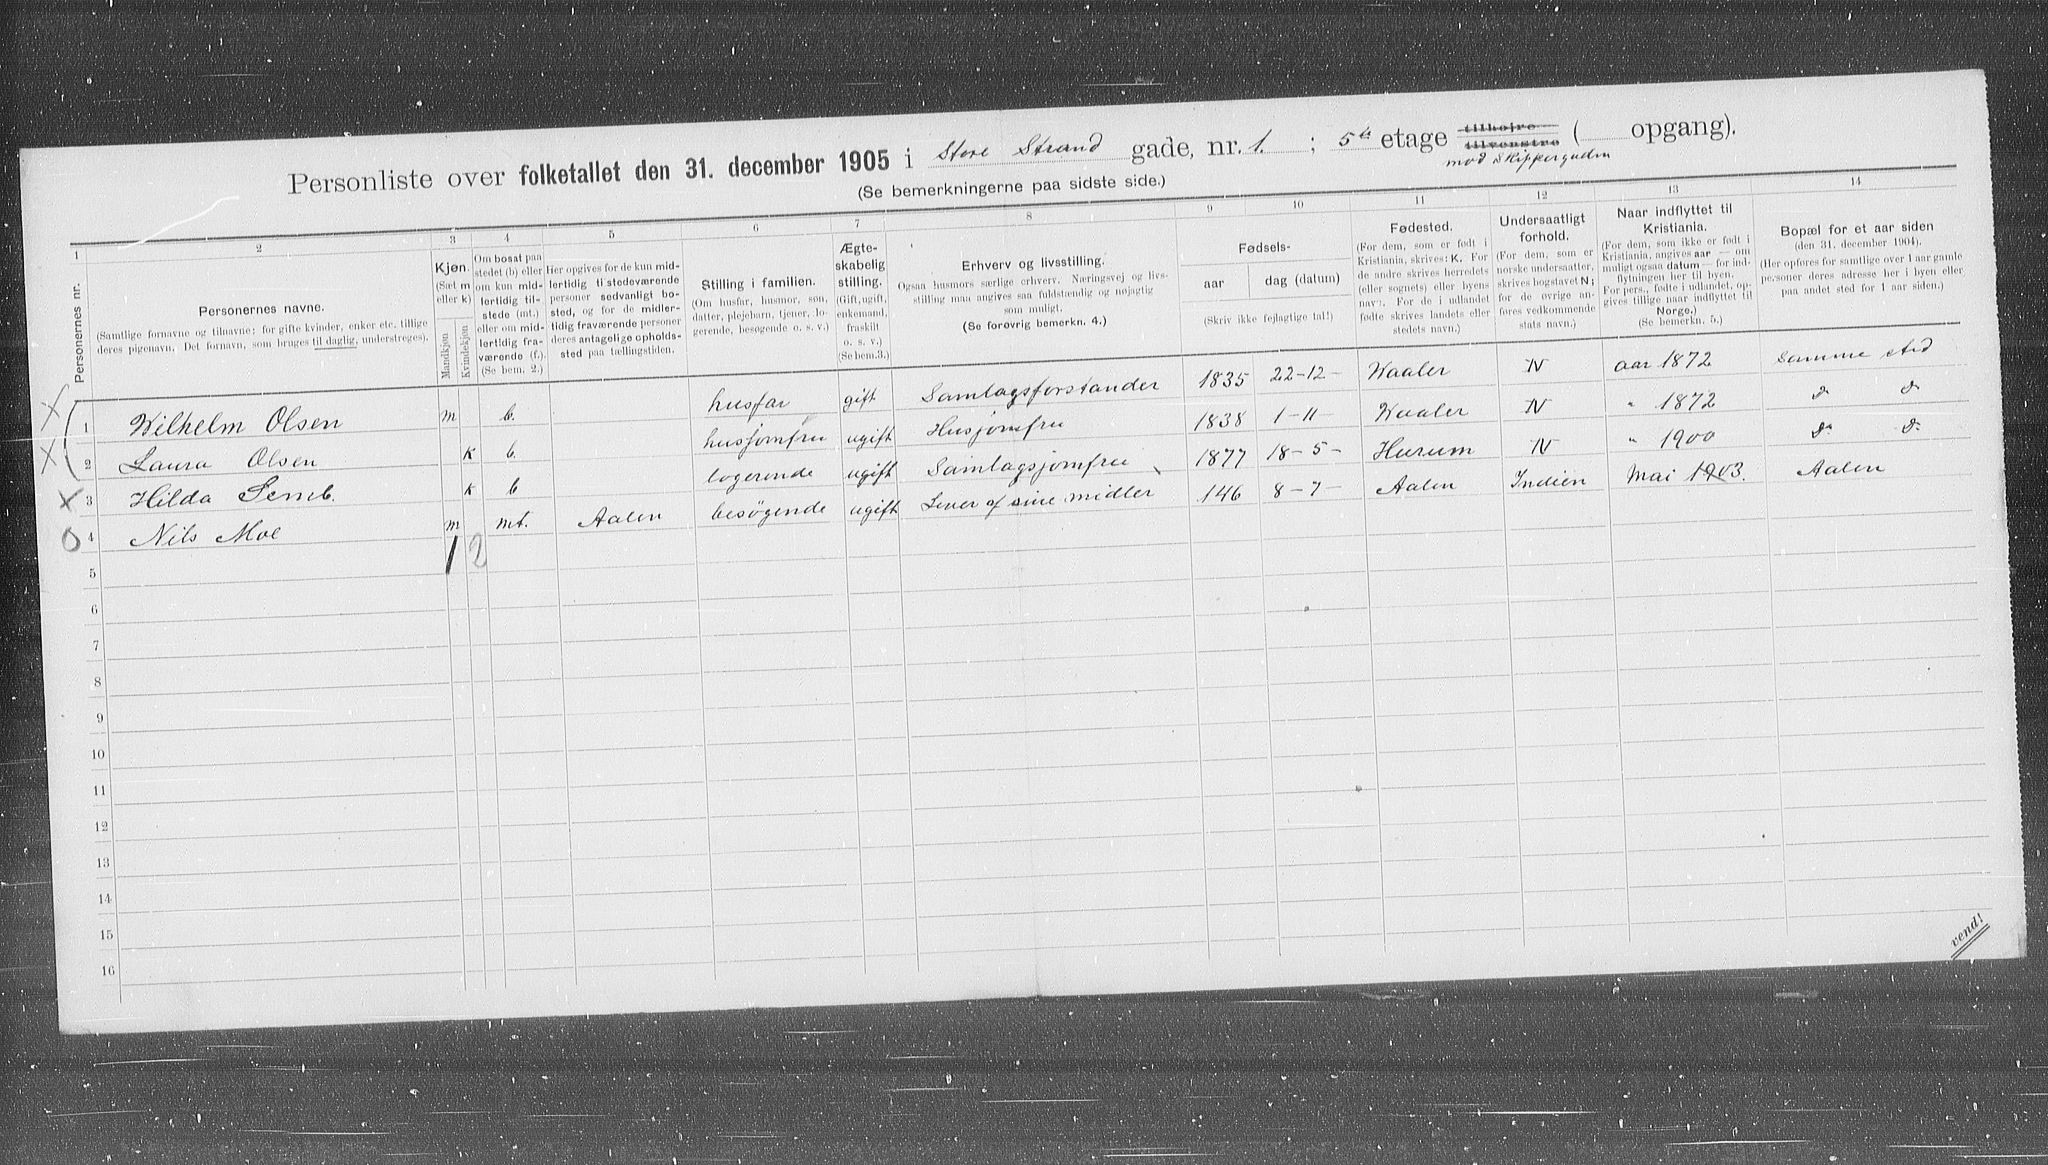 Personliste over folketallet den 31. december 1905 i Store Strand gade, nr. 1. ; 5te etage tilhøjre tilvenstre ( opgang).
mod Skippergaden
(Se bemerkningerne paa sidste side.)
1 2 3 4 5 6 7 8 9 10 11 12 13 14
Personernes nr.
Personernes navne.
(Samtlige fornavne og tilnavne; for gifte kvinder, enker etc. tillige
deres pigenavn. Det fornavn, som bruges til daglig, understreges).
Kjøn.
(Sæt m
eller k)
Mandkjøn
Kvindekjøn
Om bosat paa
stedet (b) eller
om kun mid-
lertidig til-
stede (mt.)
eller om mid-
lertidig fra-
værende (f.)
(Se bem. 2.)
Her opgives for de kun mid-
lertidig tilstedeværende
personer sedvanligt bo-
sted, og for de midler-
tidig fraværende personer
deres antagelige opholds-
sted paa tællingstiden.
Stilling i familien.
(Om husfar, husmor, søn,
datter, plejebarn, tjener, lo-
gerende, besøgende o. s. v.)
Ægte-
skabelig
stilling.
(Gift, ugift,
enkemand,
fraskilt
o. s. v.)
(Se bem.3.)
Erhverv og livsstilling.
Ogsaa husmors særlige erhverv. Næringsvej og livs-
stilling maa angives saa fuldstændig og nøjagtig
som muligt.
(Se forøvrig bemerkn. 4.)
Fødsels-
aar dag (datum)
(Skriv ikke fejlagtige tal!)
Fødested.
(For dem, som er født i
Kristiania, skrives: K. For
de andre skrives herredets
(eller sognets) eller byens
navn. For de i udlandet
fødte skrives landets eller
stedets navn.)
Undersaatligt
forhold.
(For dem, som er
norske undersaatter,
skrives bogstavet N;
for de øvrige an-
føres vedkommende
stats navn.)
Naar indflyttet til
Kristiania.
(For dem, som ikke er født i
Kristiania, angives aar — om
muligt ogsaa datum — for ind-
flytningen her til byen.
For pers., født i udlandet, op-
gives tillige naar indflyttet til
Norge.)
(Se bemerkn. 5.)
Bopæl for et aar siden
(den 31. december 1904).
(Her opføres for samtlige over 1 aar gamle
personer deres adresse her i byen eller
paa andet sted for 1 aar siden.)
X 1 Wilhelm Olsen m b. husfar gift Samlagsforstander 1835 22-12- Waaler N aar 1872 Samme sted
X 2 Laura Olsen K b. husjomfru ugift Husjomfru 1838 1-11- Waaler N " 1872 do do
X 3 Hilda Semb. K b logerende ugift Samlagsjomfru 1877 18-5- Hurum N " 1900 do do
O 4 Nils Moe m mt. Aalen besøgende ugift Lever af sine midler 146 8-7- Aalen Indien Mai 1903. Aalen
1 2
5
6
7
8
9
10
11
12
13
14
15
16
vend!